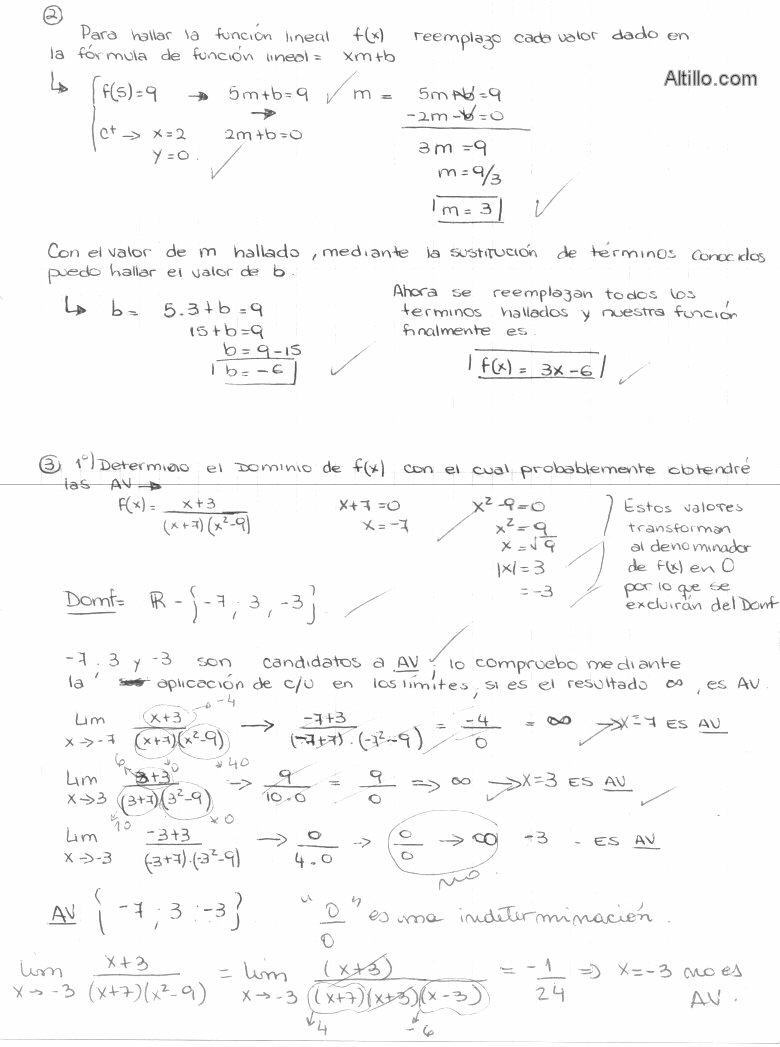 ②
Para hallar la función lineal f(x) reemplazo cada valor dado en
la fórmula de función lineal = xm+b
Altillo.com
f(5)=9 → 5m+b=9 ✓ m = 5m+b=9
→ -2m-b=0
c⁺ → x=2 2m+b=0
y=0. ✓
3m=9
m=9/3
m=3 ✓
Con el valor de m hallado, mediante la sustitución de términos conocidos
puedo hallar el valor de b.
↳ b = 5.3+b=9
15+b=9
b=9-15
b=-6 ✓
Ahora se reemplazan todos los
terminos hallados y nuestra función
finalmente es.
f(x) = 3x-6 ✓
③ 1°) Determino el Dominio de f(x) con el cual probablemente obtendré
las AV →
f(x)= x+3 / (x+7)(x²-9)
x+7=0
x=-7
x²-9=0
x²=9
x=√9
|x|=3
=-3
Estos valores
transforman
al denominador
de f(x) en 0
por lo que se
excluirán del Domf
Domf= R - {-7; 3, -3}
-7, 3 y -3 son candidatos a AV, lo compruebo mediante
la aplicación de c/u en los límites, si es el resultado ∞, es AV.
Lim x→-7 x+3 / (x+7)(x²-9) → -7+3 / (-7+7).(-7²-9) = -4/0 = ∞ → x=7 ES AV
-4
0 40
6
Lim x→3 3+3 / (3+7)(3²-9) → 9 / 10.0 = 9/0 ⇒ ∞ → x=3 ES AV
10 0
Lim x→-3 -3+3 / (-3+7).(-3²-9) → 0 / 4.0 → 0/0 → ∞ -3 - ES AV
no
AV {-7; 3; -3} "0/0" es una indeterminación.
lim x→-3 x+3 / (x+7)(x²-9) = lim x→-3 (x+3) / (x+7)(x+3)(x-3) = -1/24 ⇒ x=-3 no es
AV.
4 -6